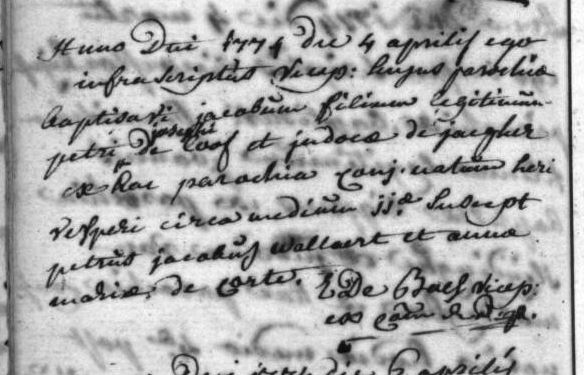 Anno Dni 1774 die 4 aprilis ego
infrascriptus vicep: hujus parochiæ
baptisavi jacobum filium legitimum
josephi
petri de Coof et judocæ de jaegher
ex hac parochia conj: natum heri
vesperi circa medium jjæ suscept
petrus jacobus wallaert et anna
mariæ de corte. L De Baes vicep: